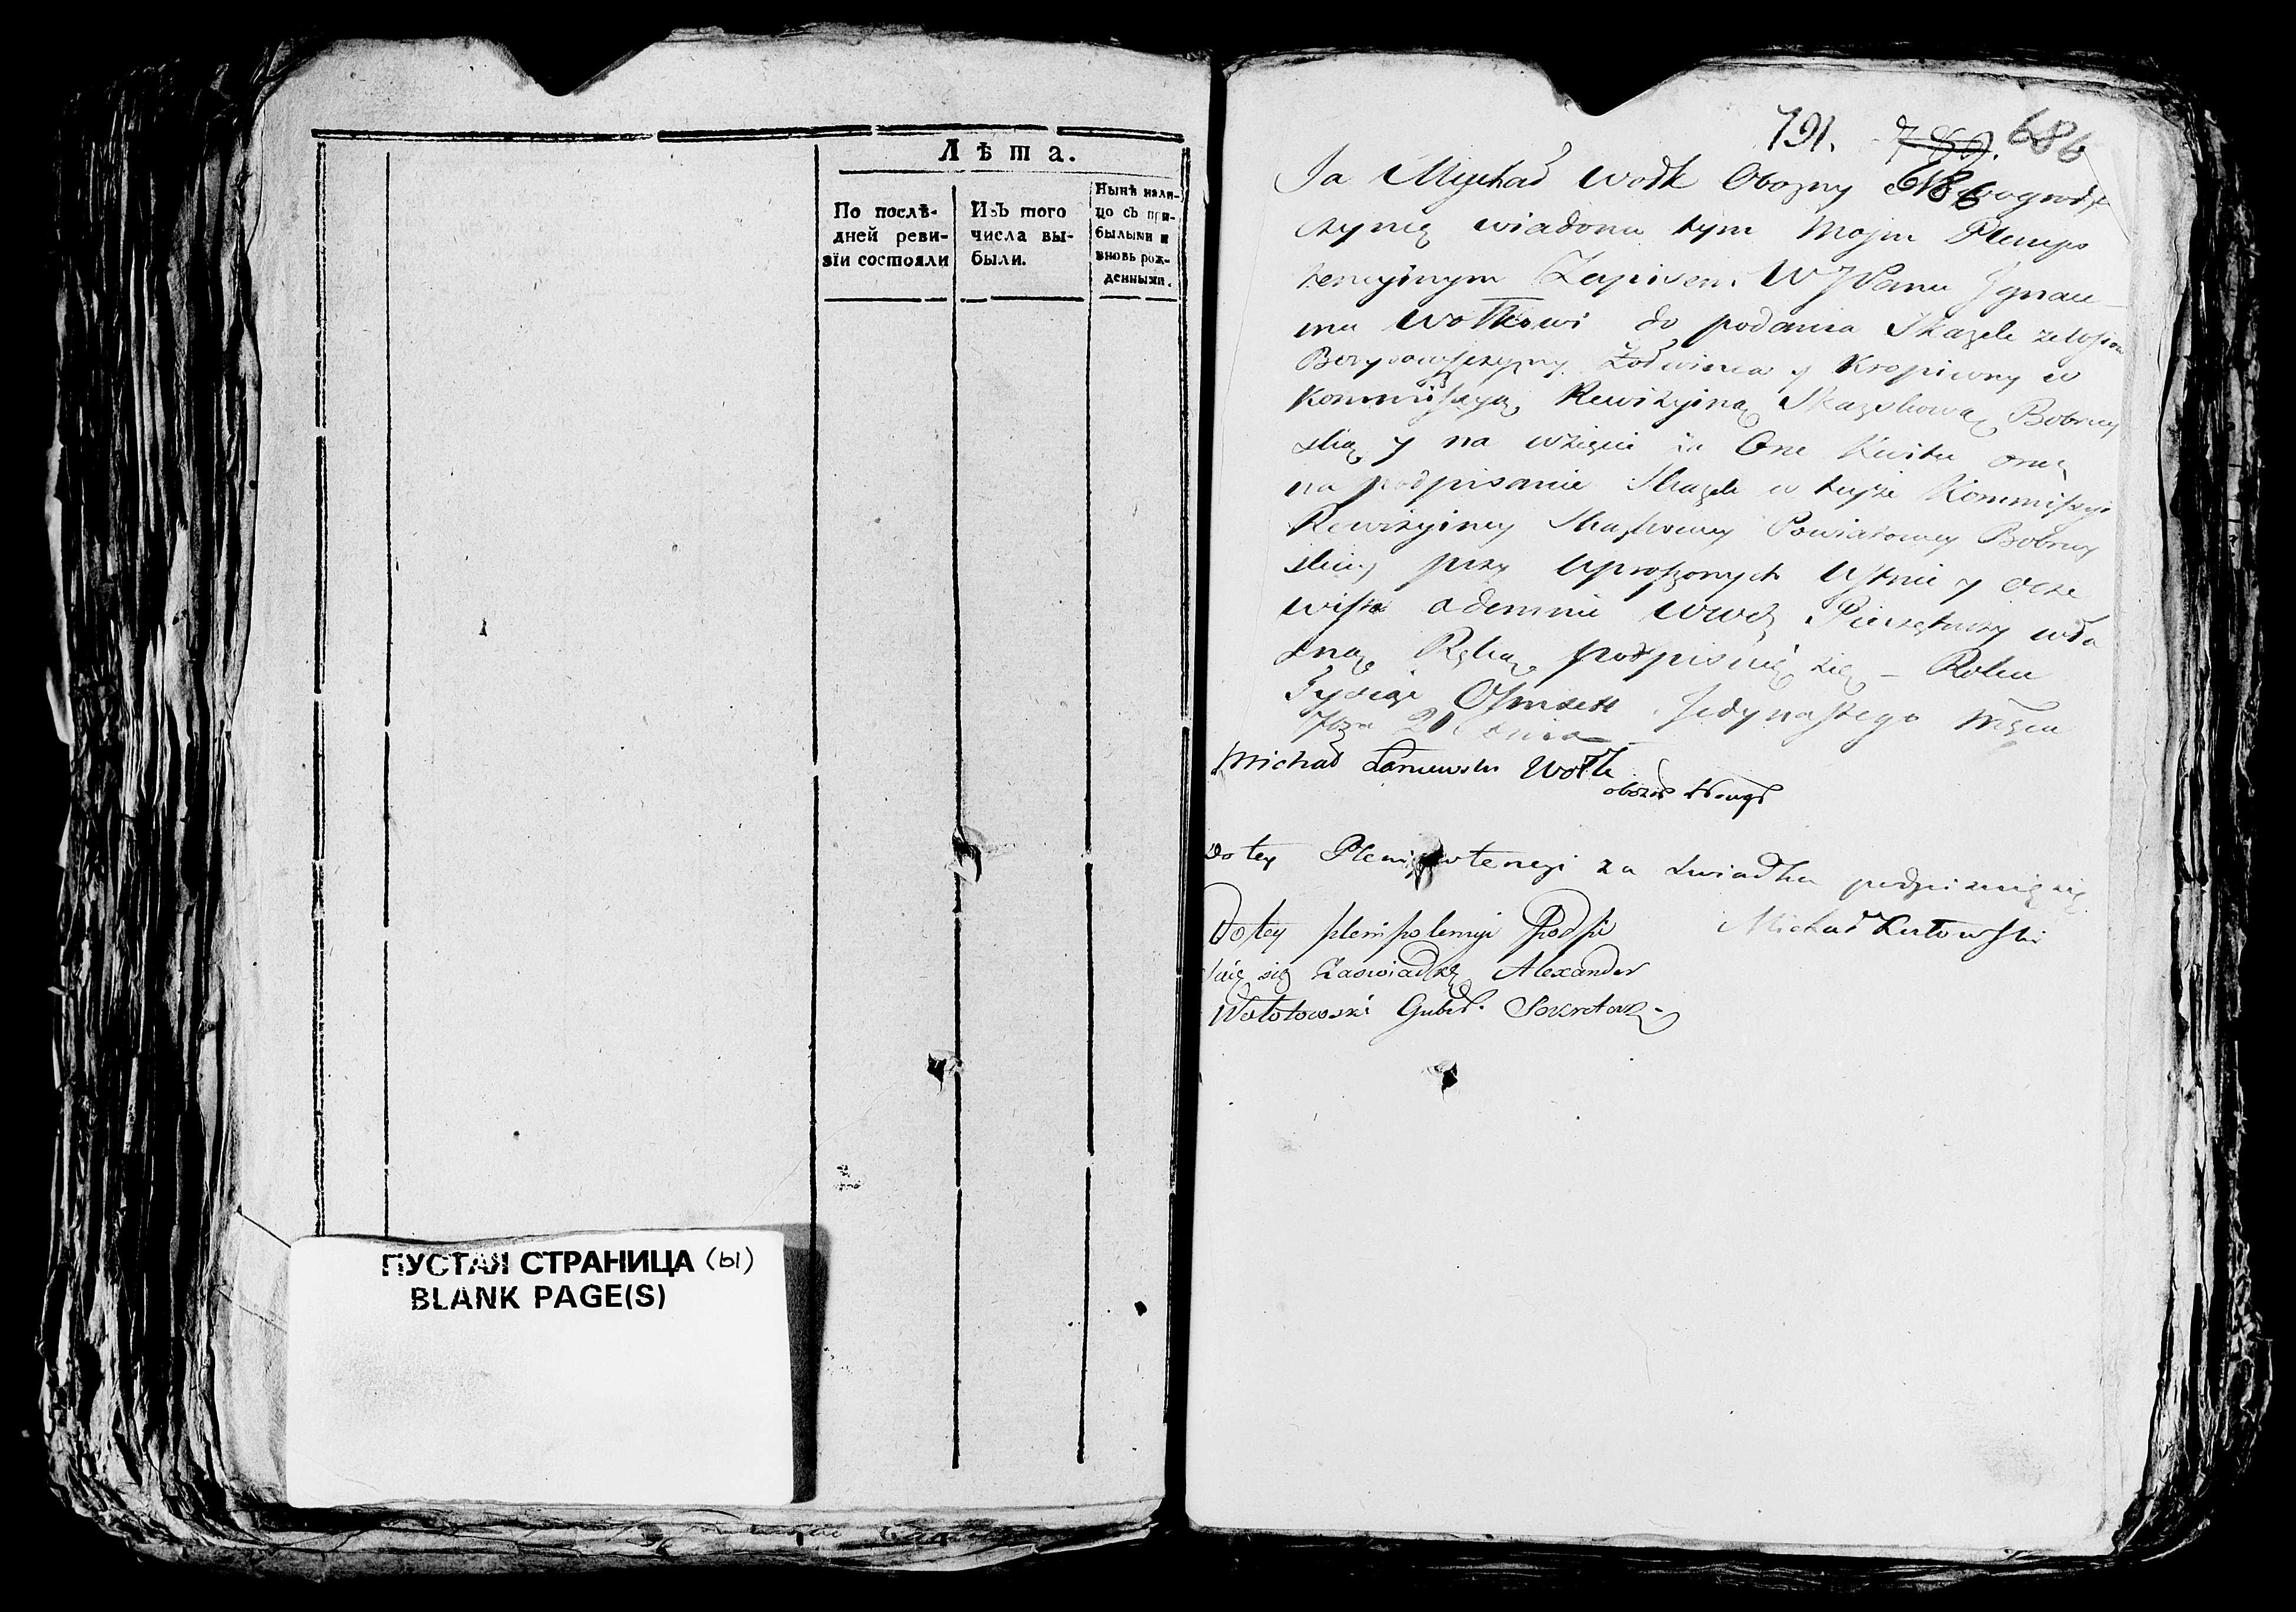 Лѣта.
По послѣ-
дней реви-
зіи состояли
Изъ того
числа вы-
были.
Нынѣ нали-
цо съ при-
былыми и
вновь рож-
денными.
ПУСТАЯ СТРАНИЦА (ы)
BLANK PAGE(S)
791. 789. 686
686
Ja Mychał Wołk Obozny
czynię wiadomo tym Moim Plenipo
tencyjnym Zapisem W JPanu Ignace
mu Wołkowi do podania Skazek
Borysowszczyzny Żołwinca y Kropiwny w
Kommissyą Rewizyiną Skazkową Bobruy
ską y na wzięcie za One Kwitu oraz
na podpisanie Skazek w teyże Kommissyi
Rewizyiney Skazkowey Powiatowey Bobruy
skiey przy uproszonych Ustnie y ocze
wisto odemnie Pieczętarzy wła
sną Ręką podpisuię się - Roku
Tysiąc Osmset Jedynastego
7bra 21 dnia
Michał Łaniewski Wołk
oboźny
Do tey Plenipotencyi za Swiadka podpisuię się
Michał
Do tey plenipotencyi Podpi
suię się Zaswiadkę Alexander
Wołotowski Gubr. Sekretarz